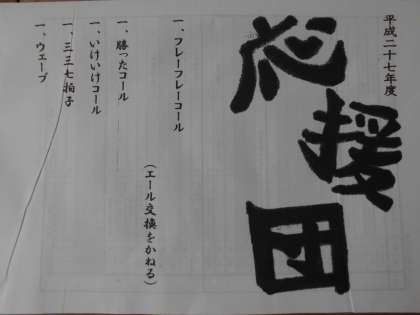 平成二十七年度
応援団
一、フレーフレーコール
(エール交換をかねる)
一、勝ったコール
一、いけいけコール
一、三三七拍子
一、ウェーブ